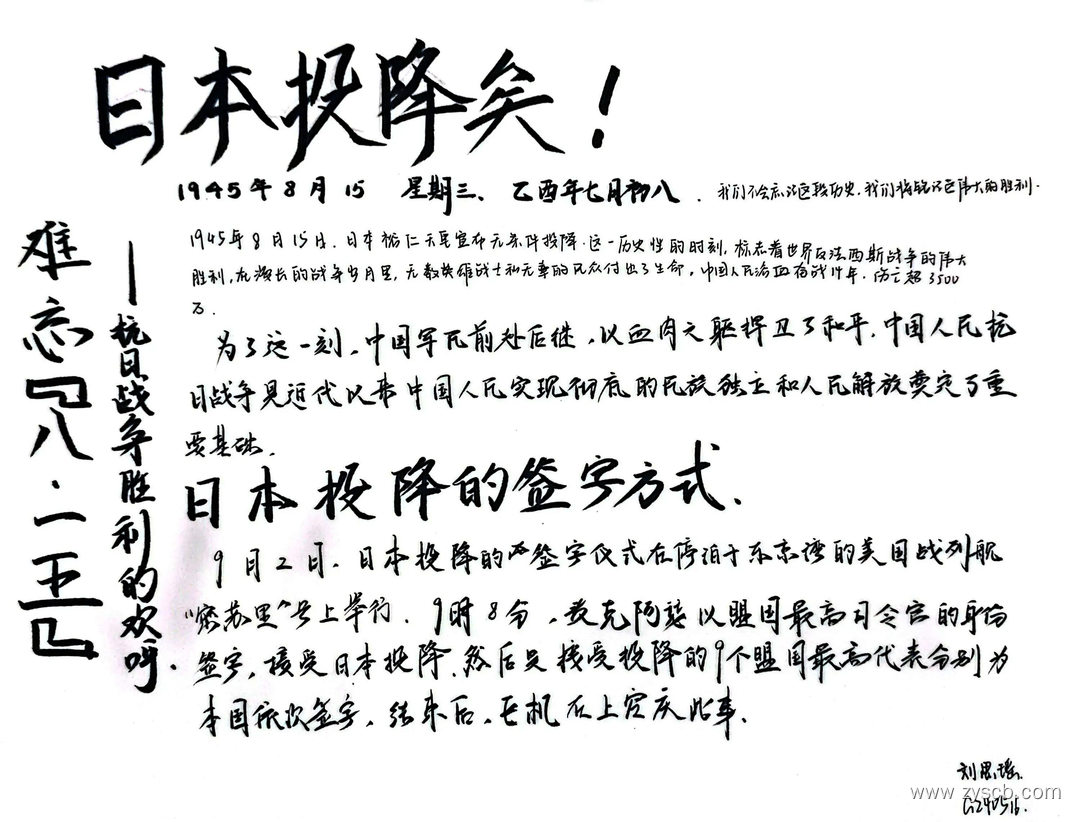 日本投降矣！
1945年8月15 星期三、乙酉年七月初八．我们不会忘记这段历史，我们将铭记这伟大的胜利．
难忘『八·一五』
——抗日战争胜利的欢呼．
1945年8月15日．日本裕仁天皇宣布无条件投降．这一历史性的时刻，标志着世界反法西斯战争的伟大
胜利，在漫长的战争岁月里，无数英雄战士和无辜的民众付出了生命，中国人民浴血奋战14年．伤亡超3500
万．
为了这一刻，中国军民前赴后继，以血肉之躯捍卫了和平，中国人民抗
日战争是近代以来中国人民实现彻底的民族独立和人民解放奠定了重
要基础．
日本投降的签字方式．
9月2日．日本投降的签字仪式在停泊于东京湾的美国战列舰
“密苏里”号上举行．9时8分，麦克阿瑟以盟国最高司令官的身份
签字，接受日本投降．然后是接受投降的9个盟国最高代表分别为
本国依次签字．结束后，上 庆此事．
刘思瑶
G240516．
www.zyscb.com